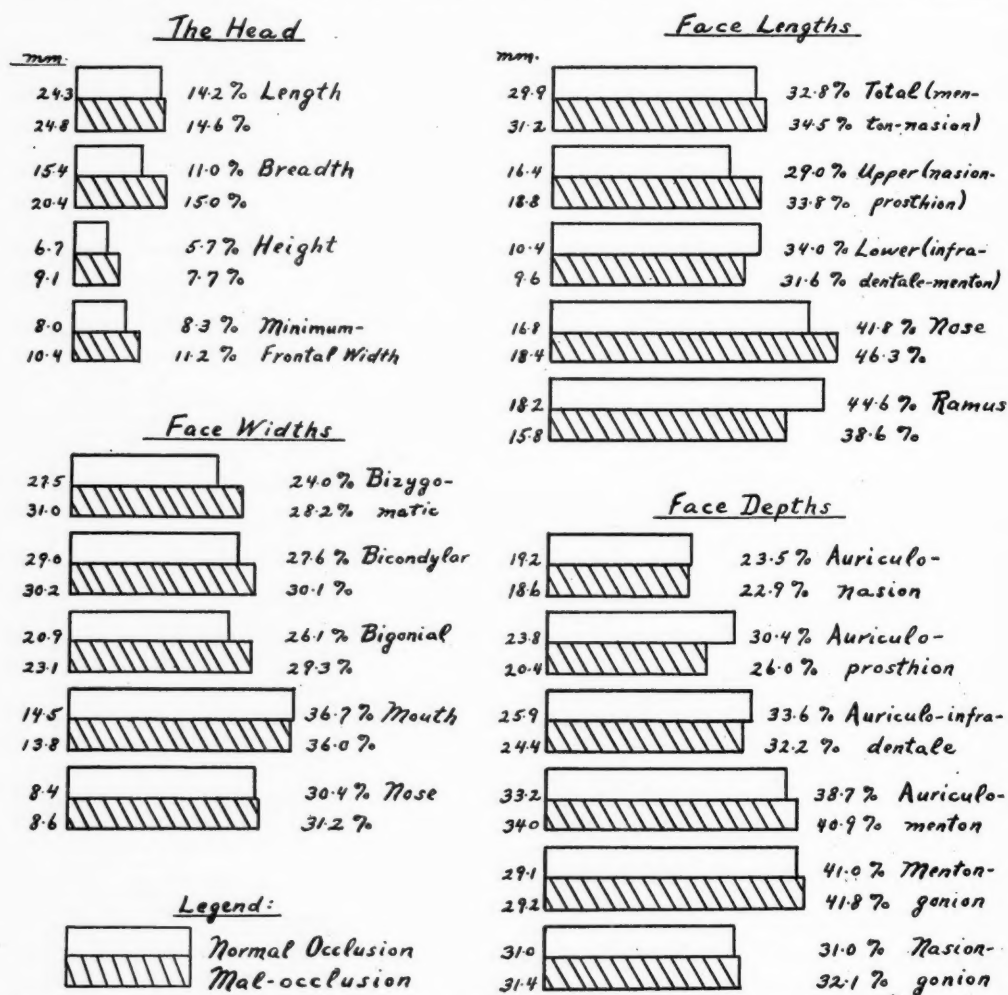 The Head
mm.
24.3 14.2% Length
24.8 14.6%
15.4 11.0% Breadth
20.4 15.0%
6.7 5.7% Height
9.1 7.7%
8.0 8.3% Minimum-
10.4 11.2% Frontal Width
Face Widths
27.5 24.0% Bizygo-
31.0 28.2% matic
29.0 27.6% Bicondylar
30.2 30.1%
20.9 26.1% Bigonial
23.1 29.3%
14.5 36.7% Mouth
13.8 36.0%
8.4 30.4% Nose
8.6 31.2%
Legend:
Normal Occlusion
Mal-occlusion
Face Lengths
mm.
29.9 32.8% Total (men-
31.2 34.5% ton-nasion)
16.4 29.0% Upper (nasion-
18.8 33.8% prosthion)
10.4 34.0% Lower (infra-
9.6 31.6% dentale-menton)
16.8 41.8% Nose
18.4 46.3%
18.2 44.6% Ramus
15.8 38.6%
Face Depths
19.2 23.5% Auriculo-
18.6 22.9% nasion
23.8 30.4% Auriculo-
20.4 26.0% prosthion
25.9 33.6% Auriculo-infra-
24.4 32.2% dentale
33.2 38.7% Auriculo-
34.0 40.9% menton
29.1 41.0% Menton-
29.2 41.8% gonion
31.0 31.0% Nasion-
31.4 32.1% gonion